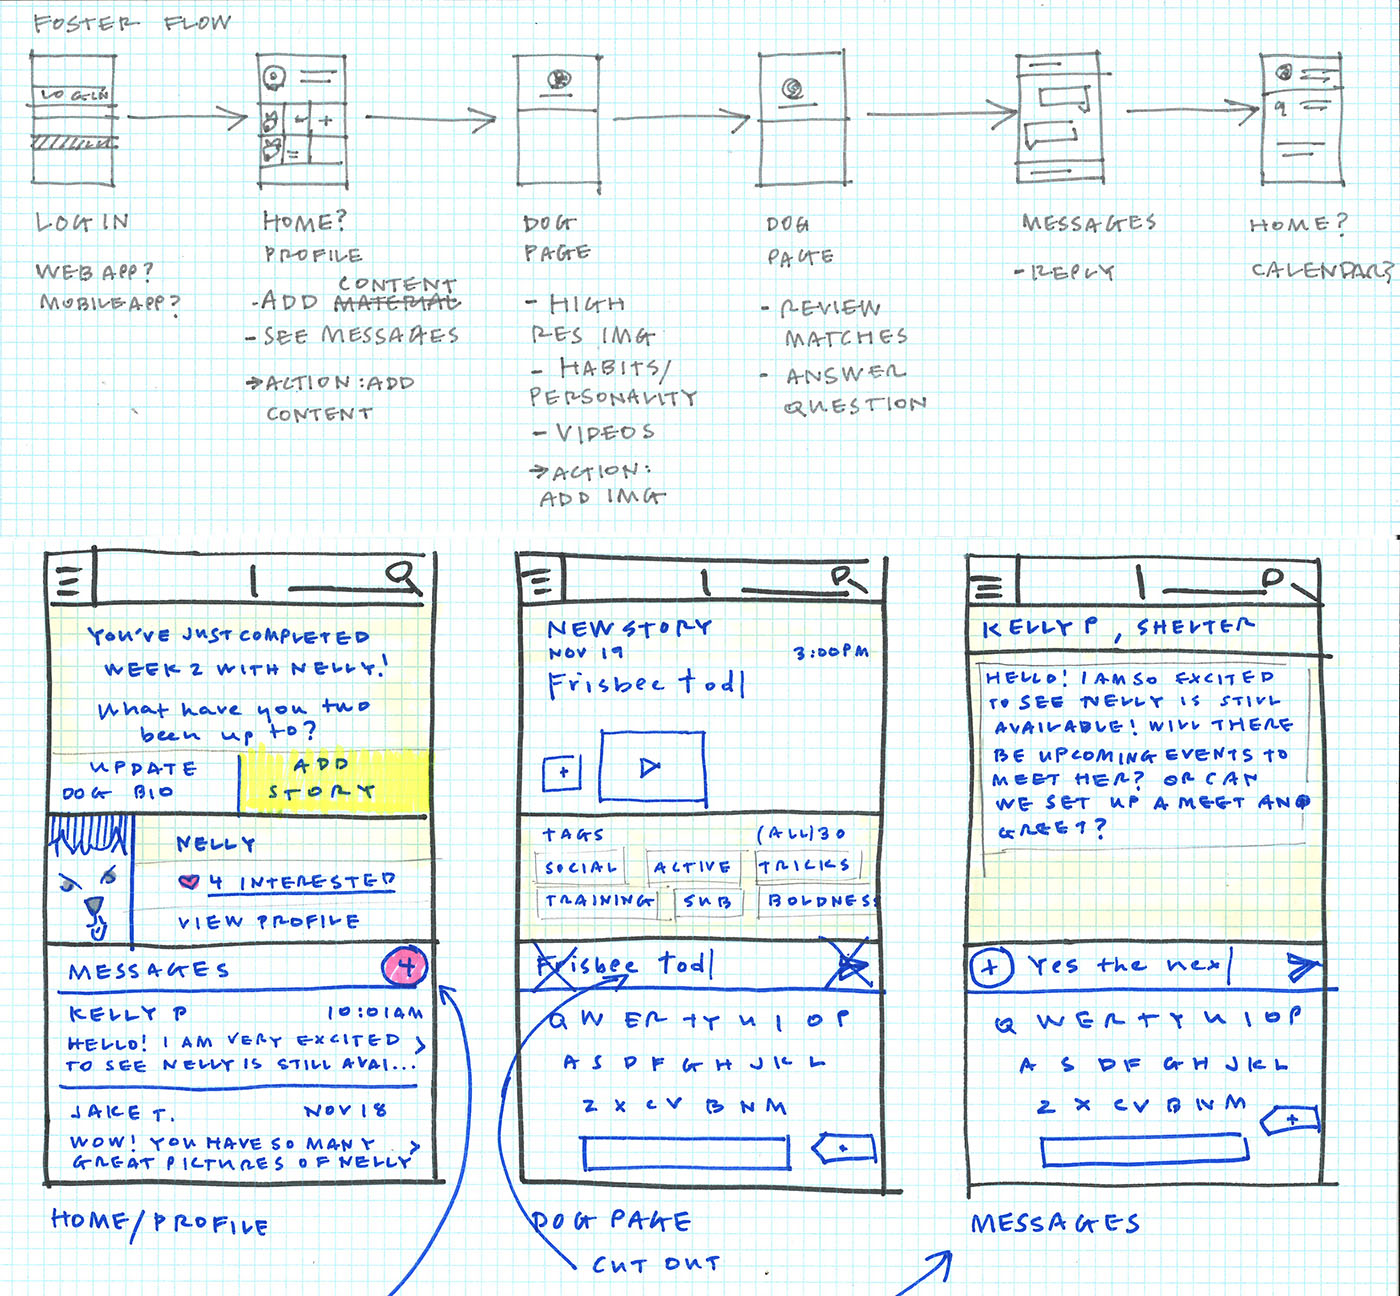 FOSTER FLOW
LOGIN
LOGIN
WEB APP?
MOBILE APP?
HOME?
PROFILE
CONTENT
- ADD MATERIAL
- SEE MESSAGES
→ ACTION: ADD
CONTENT
DOG
PAGE
- HIGH
RES IMG
- HABITS/
PERSONALITY
- VIDEOS
→ ACTION:
ADD IMG
DOG
PAGE
- REVIEW
MATCHES
- ANSWER
QUESTION
MESSAGES
- REPLY
HOME?
CALENDAR?
YOU'VE JUST COMPLETED
WEEK 2 WITH NELLY!
What have you two
been up to?
UPDATE
DOG BIO
ADD
STORY
NELLY
4 INTERESTED
VIEW PROFILE
MESSAGES 4
KELLY P 10:01AM
HELLO! I AM VERY EXCITED >
TO SEE NELLY IS STILL AVAI...
JAKE T. NOV 18
WOW! YOU HAVE SO MANY >
GREAT PICTURES OF NELLY
HOME/PROFILE
NEW STORY
NOV 19 3:00PM
Frisbee tod|
+
TAGS (ALL) 30
SOCIAL ACTIVE TRICKS
TRAINING SUB BOLDNESS
Frisbee tod|
Q W E R T Y U I O P
A S D F G H J K L
Z X C V B N M
+
DOG PAGE
CUT OUT
KELLY P, SHELTER
HELLO! I AM SO EXCITED
TO SEE NELLY IS STILL
AVAILABLE! WILL THERE
BE UPCOMING EVENTS TO
MEET HER? OR CAN
WE SET UP A MEET AND
GREET?
+ Yes the nex|
Q W E R T Y U I O P
A S D F G H J K L
Z X C V B N M
+
MESSAGES